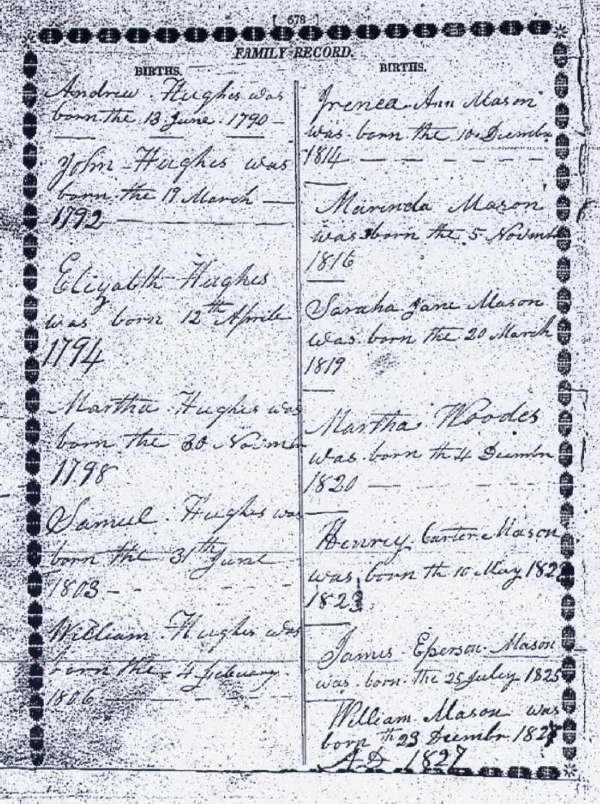 [ 678 ]
FAMILY RECORD.
BIRTHS.
Andrew Hughes was
born the 13 June 1790
John Hughes was
born the 19 March
1792
Elizabth Hughes
was born 12th Aprile
1794
Martha Hughes was
born the 30 Novimer
1798
Samuel Hughes was
born the 31th June
1803
William Hughes was
born the 4 Febuary
1806
BIRTHS.
Irenea Ann Mason
was born the 10 Decembr
1814
Marinda Mason
was born the 5 Novembr
1816
Saraha Jane Mason
was born the 20 March
1819
Martha Woodes
was born th 4 Decembr
1820
Henrey Carter Mason
was born th 10 May 1823
1823
James Eperson Mason
was born the 25 July 1825
William Mason was
born th 23 Decembr 1827
AD 1827